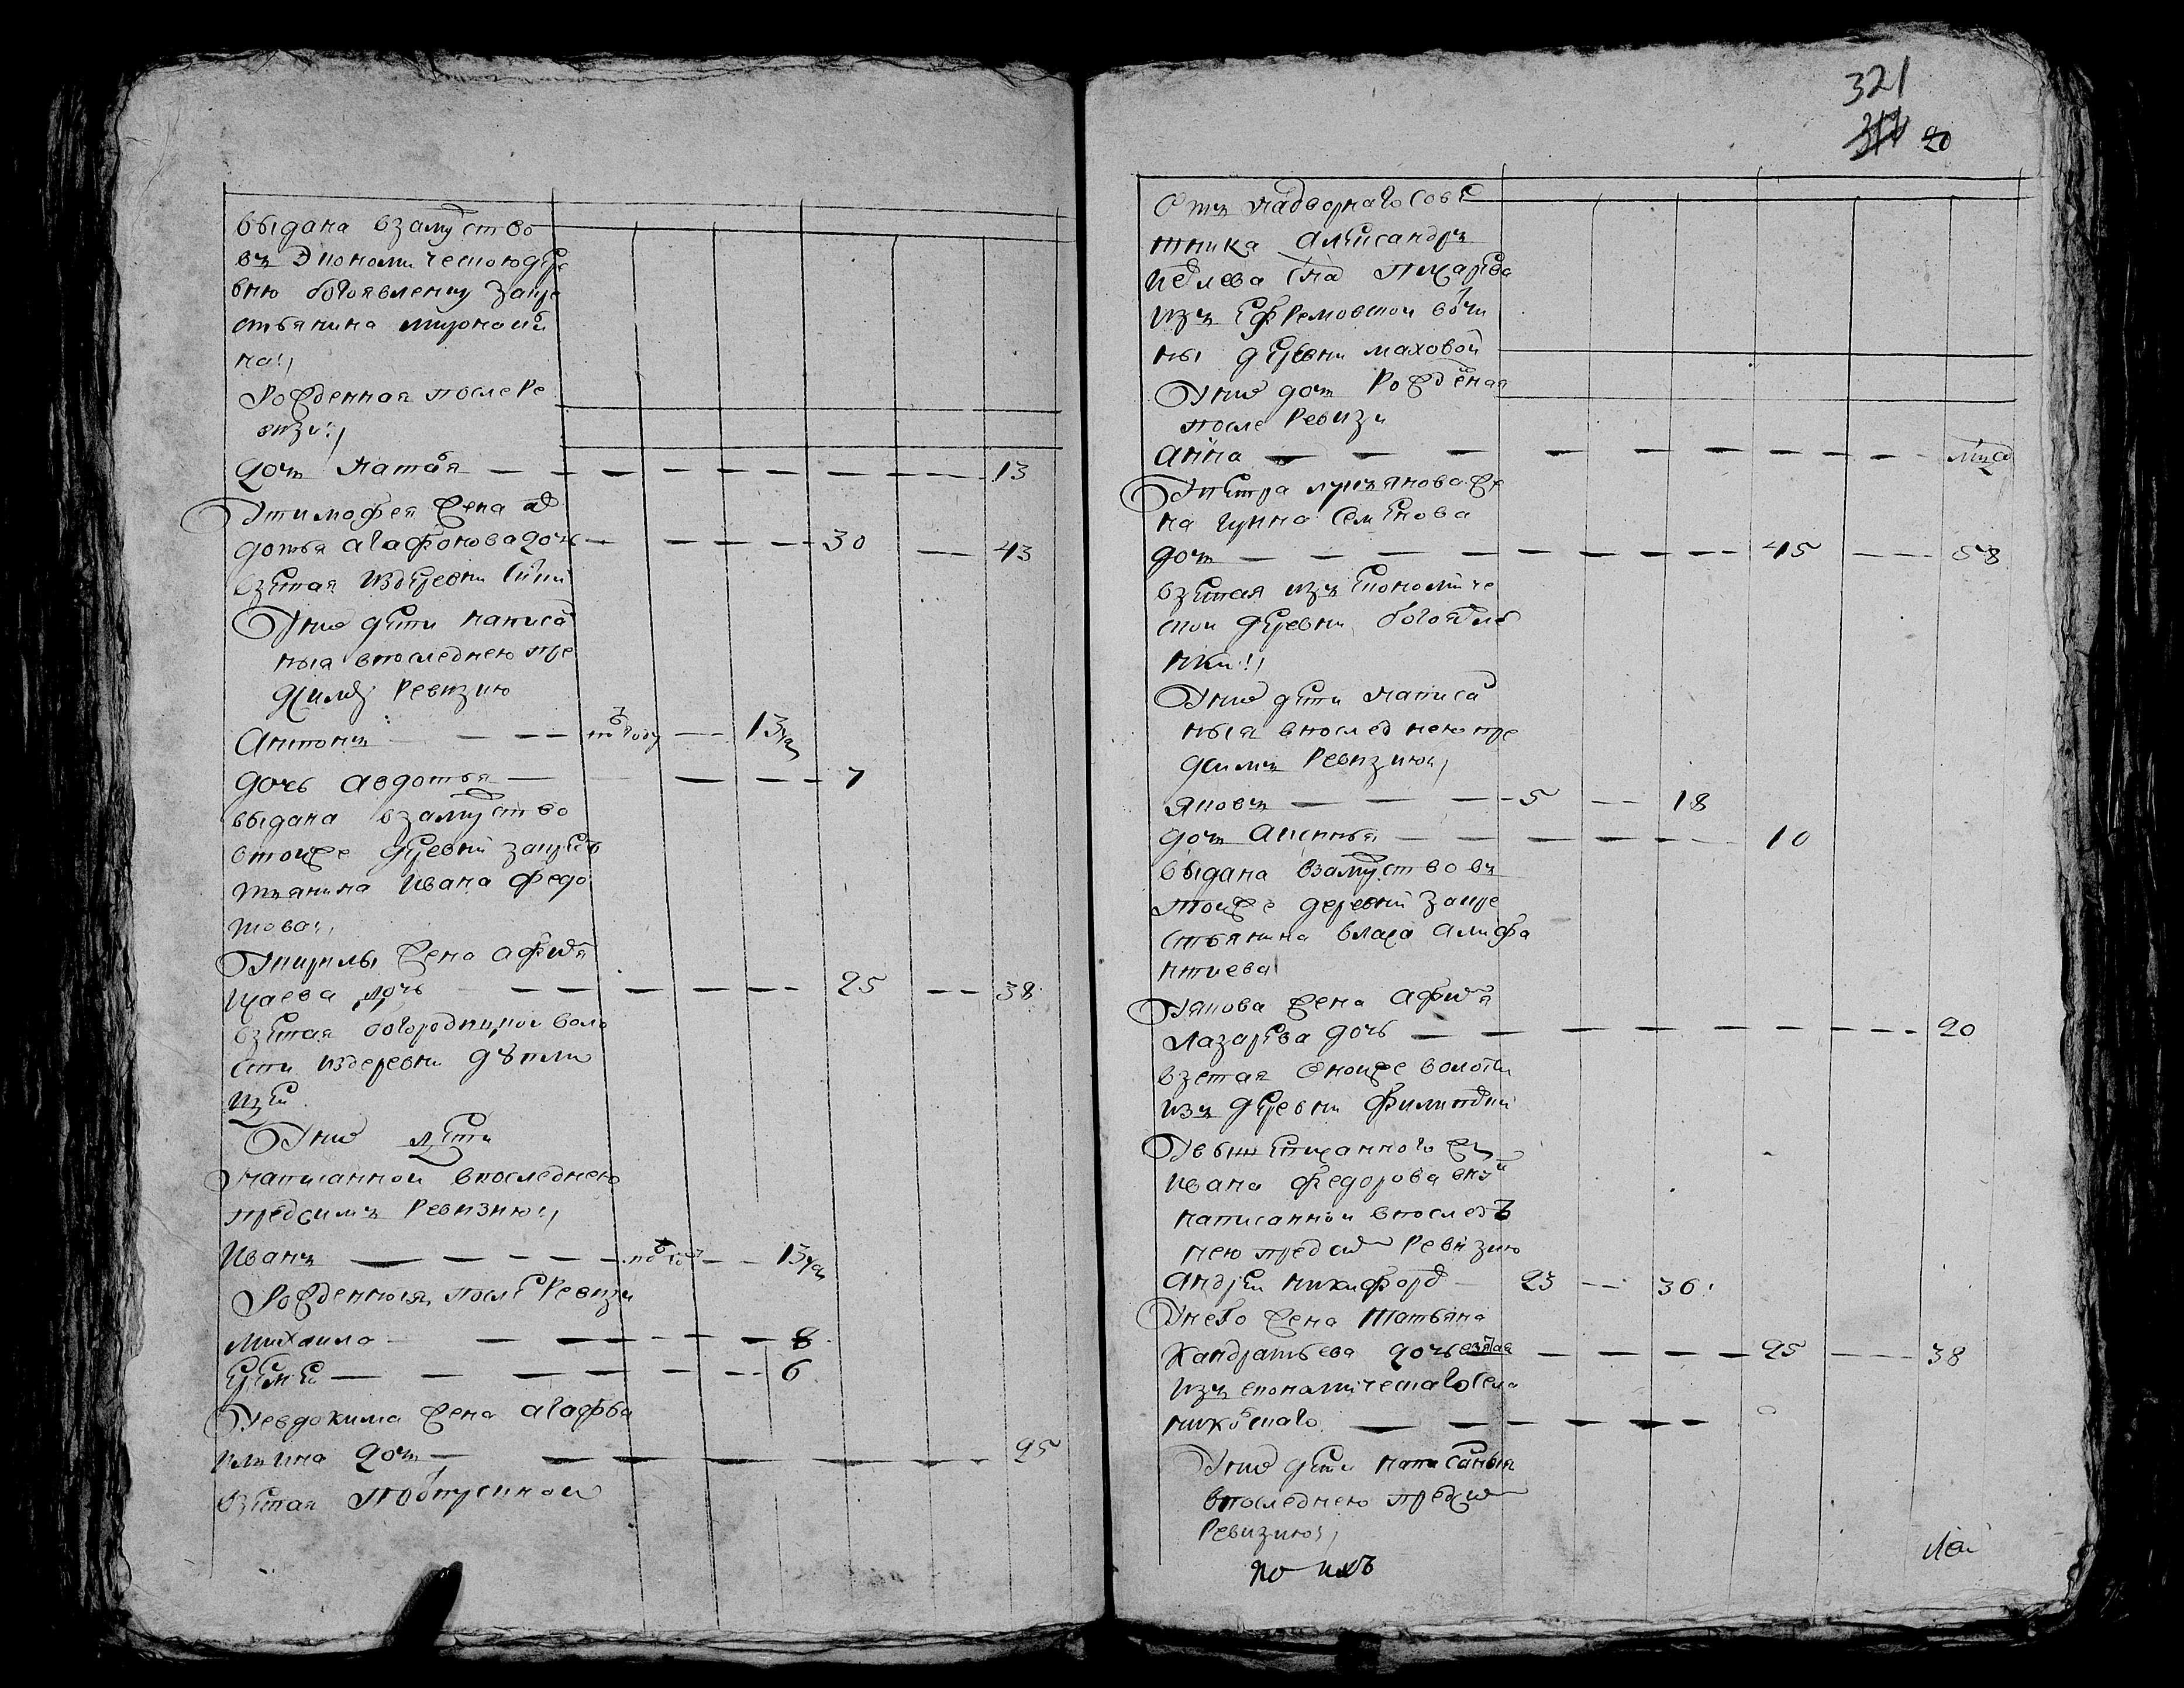 выдана взамуство
въ Экономическою дере
вню богоявленску закре
стьянина миронаои
на
Рожденная после Ре
визи
дочь Наталя 13
У тимофея жена ав
дотья агафонова дочь 30 43
взетая издеревни
У них дети написа
ныя впоследнею пре
дсимъ Ревизию
Антонъ полгоду 13 1/2
дочь авдотья 7
выдана взамуство
втойже деревни закресть
тьянина Ивана федо
това
У кирилы жена афимя
Исаева дочь 25 38
взетая богородицкои воло
сти издеревни
У них дети
написанной впоследнею
предсимъ Ревизию
Иванъ полгод 13 1/2
Рожденныя после Ревизи
михаила 8
Еремеи 6
У евдокима жена агафья
ильина дочь 25
взетая по отпускной
321
20
Отъ надворнаго сове
тника Александръ
Иевлева сна Писарева
изъ Ефремовской вотчи
ны деревни маховой
У них дочь Рожденая
после Ревизи
анна
У петра лукъянова же
на Семенова
дочь 45 58
взетая изъ Економиче
ской деревни богоявле
нки
У них дети написа
ныя впоследнею пре
дсимъ Ревизию
Яковъ 5 18
дочь Аксинья 10
выдана взамуство въ
тойже деревни закре
стьянина власа алифа
нтиева
У якова жена афимя
Лазарева дочь 20
взетая оноиже волости
изъ деревни
У вышеписанного
Ивана федорова
написанной впослед
нею предсим Ревизию
Андреи никифоров 23 36
У него жена Татьяна
Кандратьева дочь взятая 25 38
изъ економическаго села
никольскаго
У них дети написаныя
впоследнею предсим
Ревизию
по ихъ